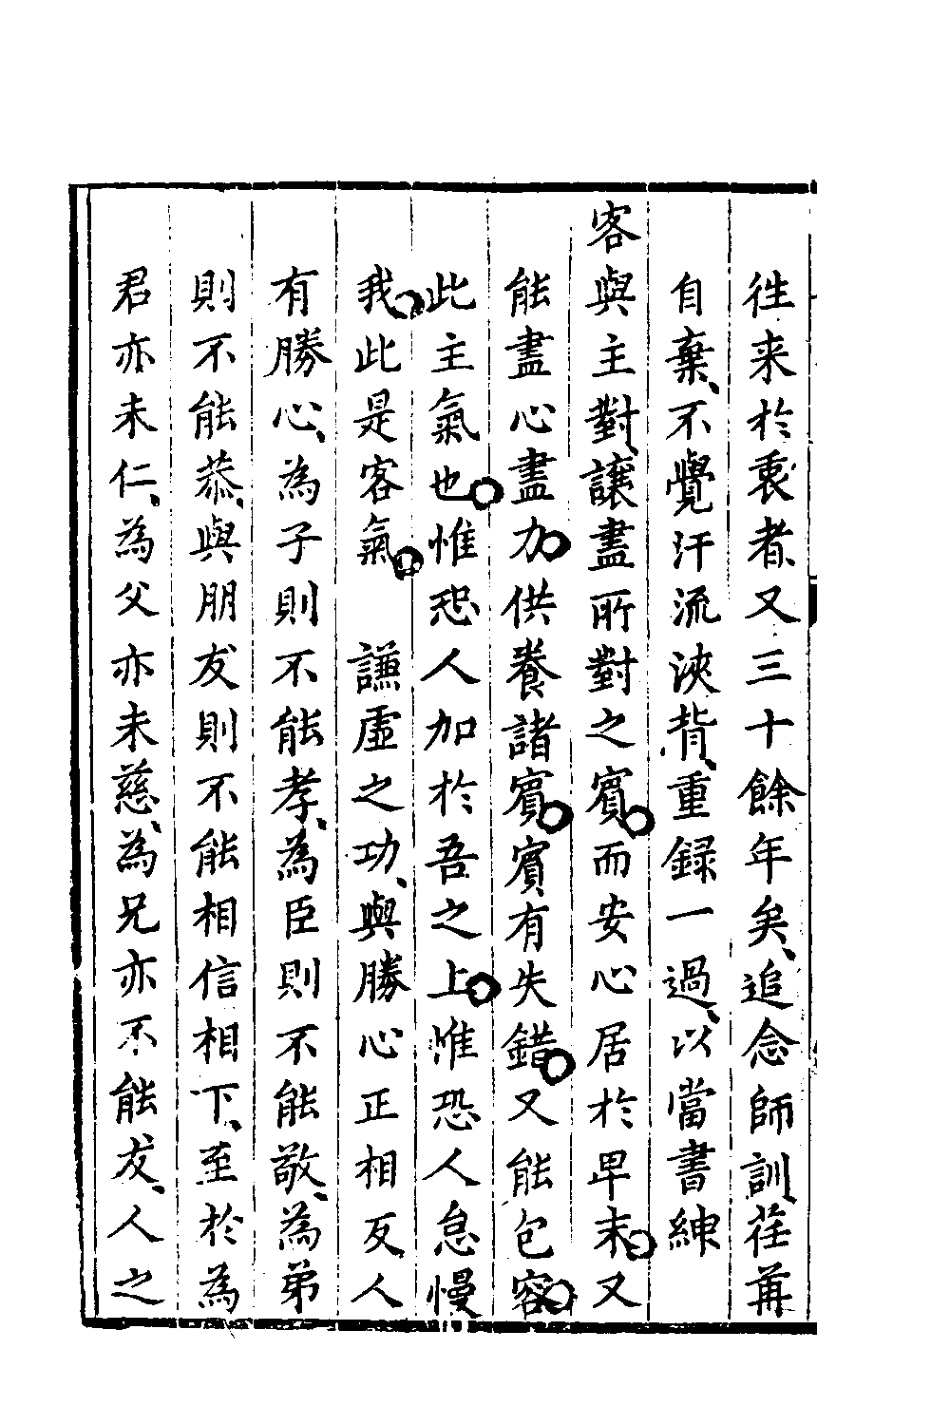 徃来於衷者又三十餘年矣追念師訓荏苒
自棄不覺汗流浹背重録一過以當書紳
客與主對讓盡所對之賓而安心居於卑末又
能盡心盡力供養諸賓賓有失錯又能包容
此主氣也惟恐人加於吾之上惟恐人怠慢
我此是客氣　謙虛之功與勝心正相反人
有勝心為子則不能孝為臣則不能敬為弟
則不能恭與朋友則不能相信相下至於為
君亦未仁為父亦未慈為兄亦不能友人之